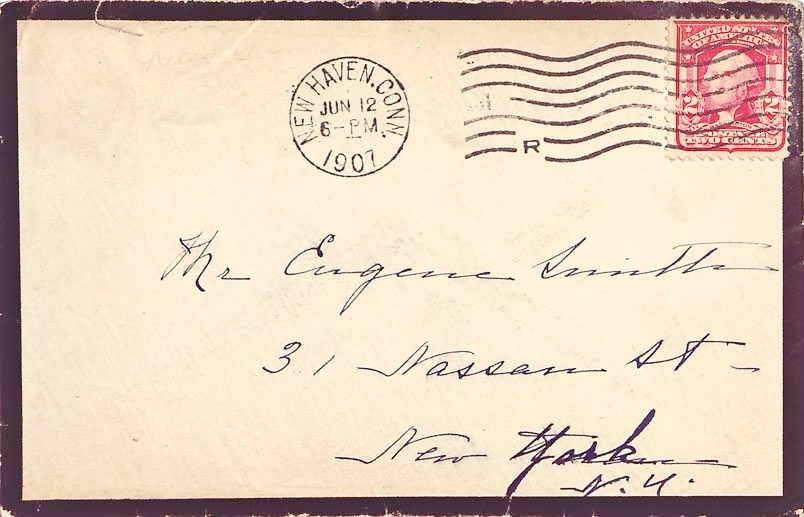 NEW HAVEN. CONN.
JUN 12
6-PM.
1907
R
UNITED STATES
OF AMERICA
2 2
POSTAGE
TWO CENTS
Mr Eugene Smith
31 Nassau St
New York
N.Y.